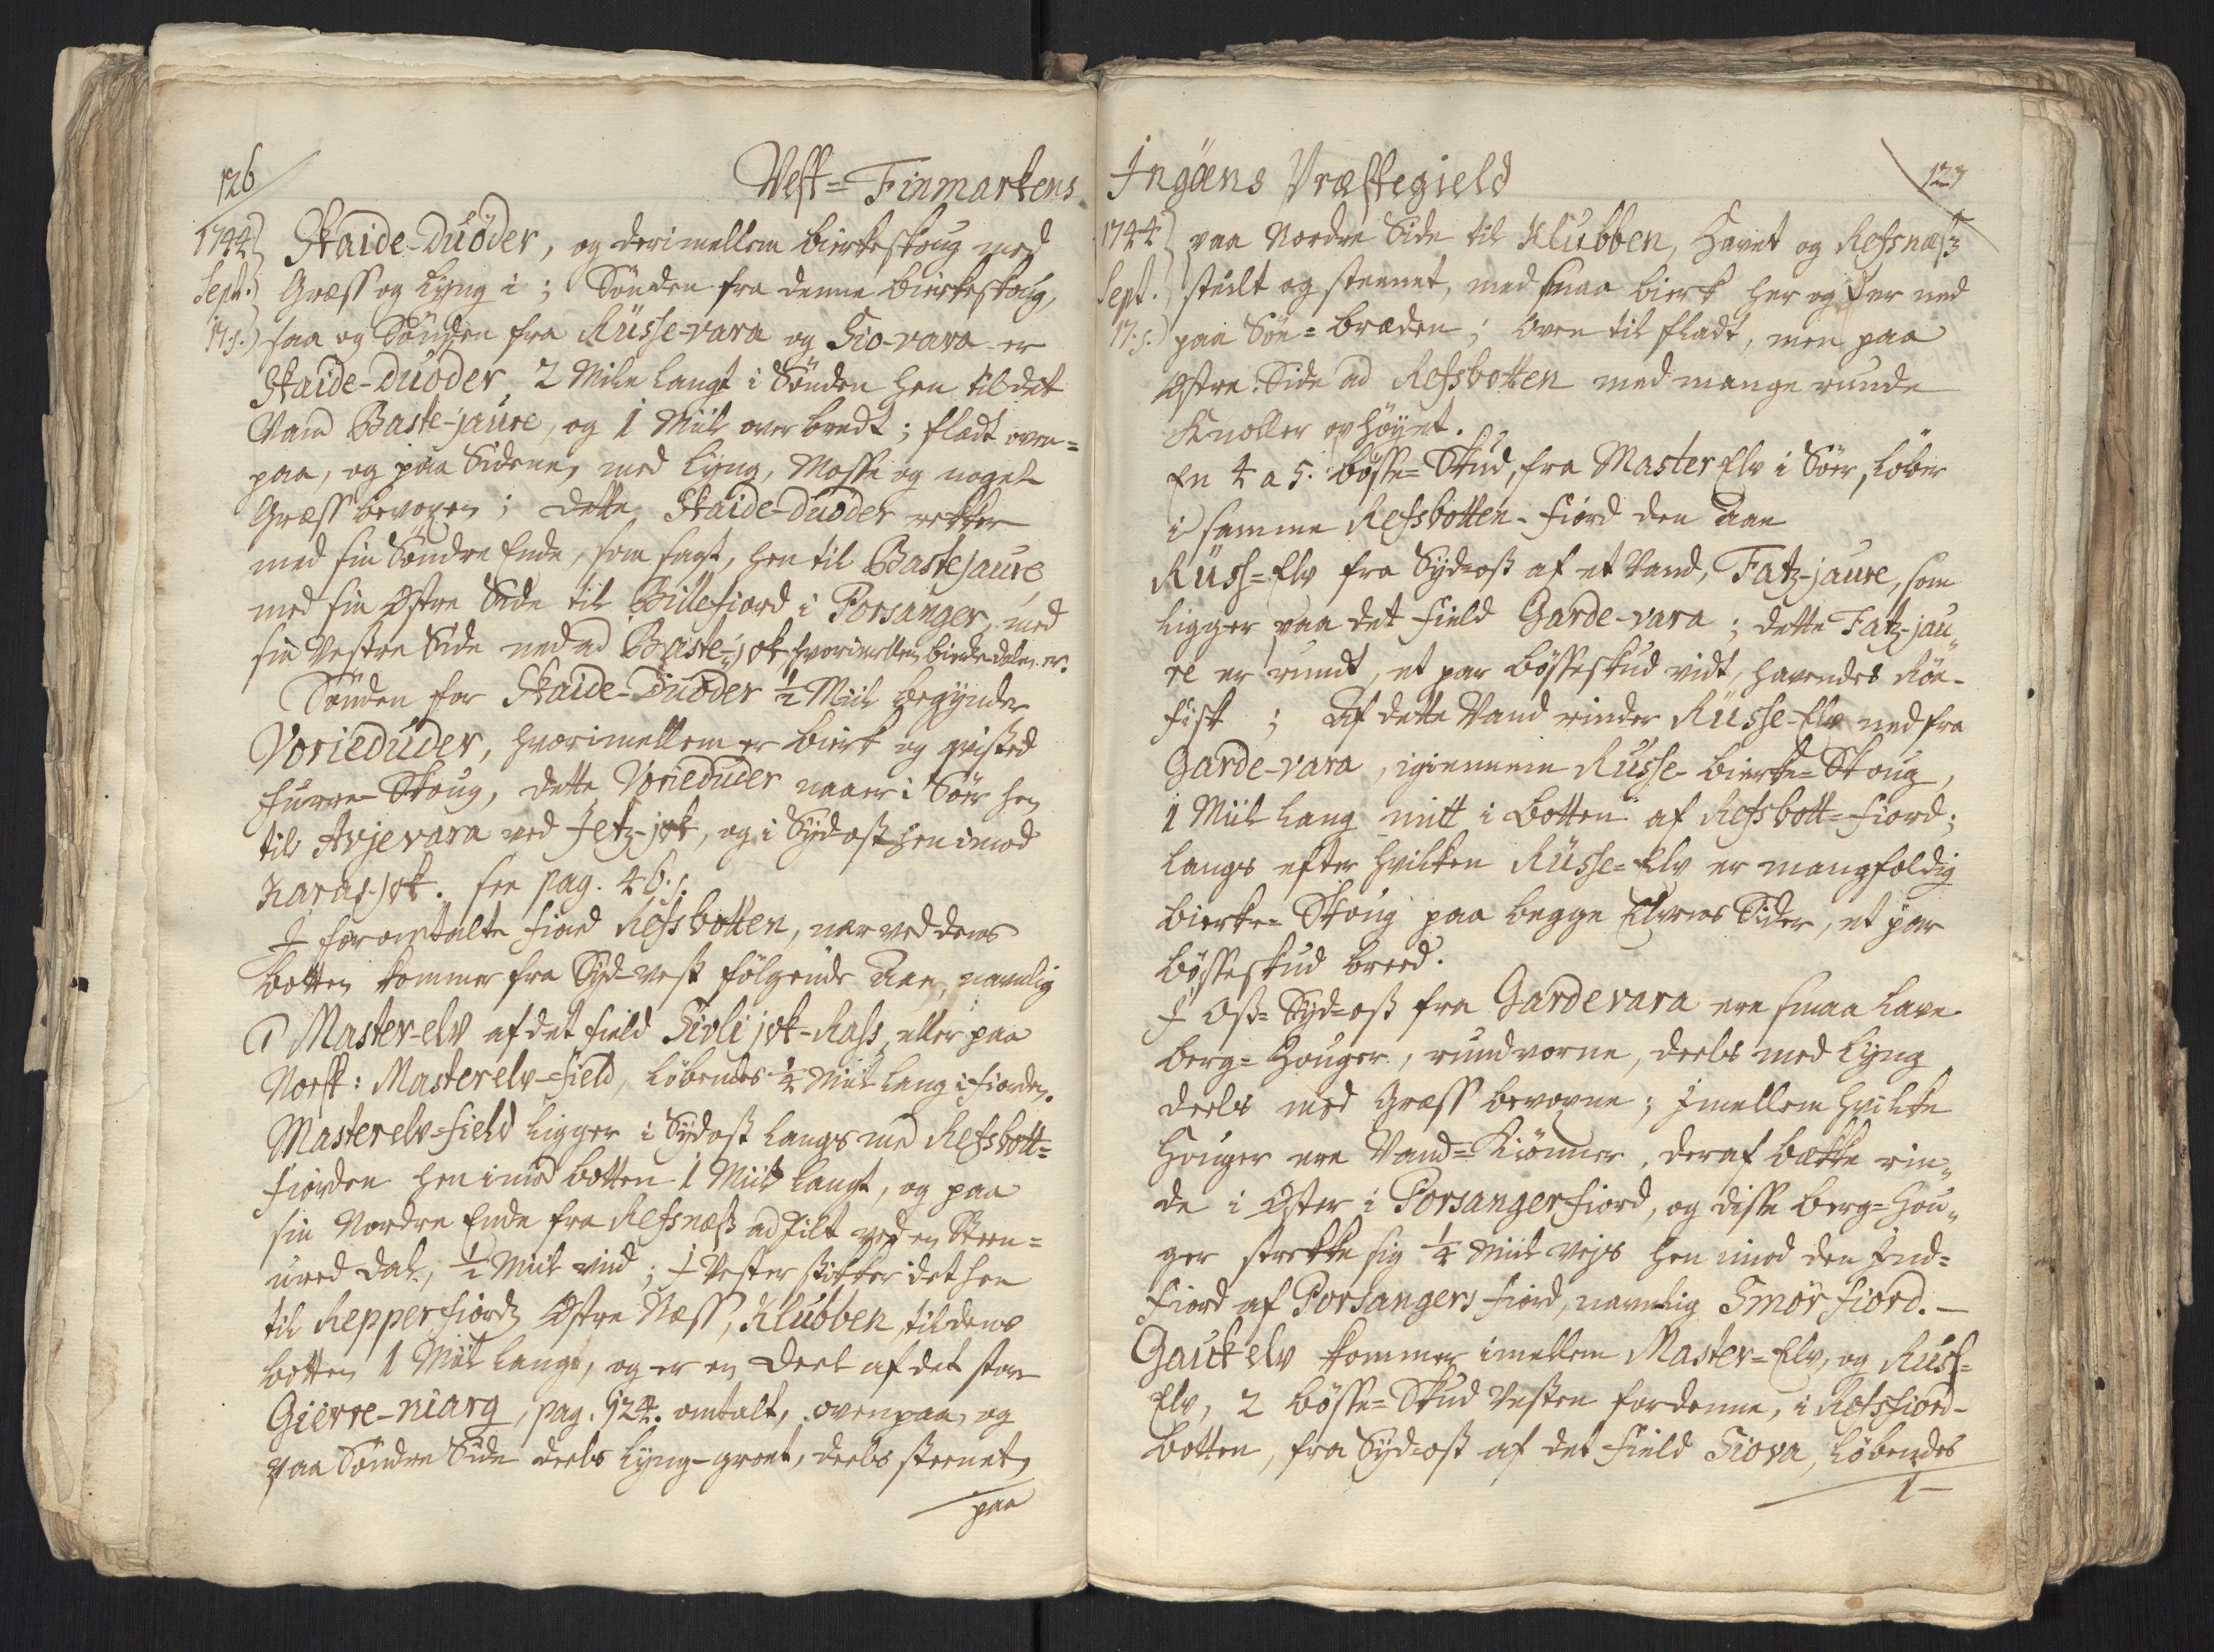 126
Vest=Finmarkens
1744 Skaide-duöder, og derimellem birkeskoug med
Sept: Græss og Lyng i; Sönden fra denne birkeskoug,
17.s.) saa og Sönden fra Rüsse-vara og Gio-vara er
Skaide-duöder 2 Mile langt i Sönden hen til det
Vand Baste-jaure, og 1 Miil over bredt; fladt oven=
paa, og paa Siderne, med Lyng, Mosse og noget
Græss bevoxen; dette Skaide-duöder rekker
med sin Söndre Ende, som sagt, hen til Bastejaure,
med sin Østre Side til Billefiord i Porsanger, med
sin Vestre Side ned ad Baste-jok hvorimellem birkedalen er.
Sönden for Skaide-Duöder ½ Miil begynder
Vorieduder, hvorimellem er birk og qvisted
furre-Skoug, dette Vorieduder naaer i Söer hen
til Avjevara ved Jetz-jok, og i Sydost hen imod
Karas-jok. see pag. 46.s.
I foromtalte fiord Refsbotten, nær ved dens
botten kommer fra Syd-vest fölgende Aae, navnlig
Master-elv af det field Siolijok-Rass, eller paa
Norsk: Masterelv-field, löbendes ¼ Miil lang i fiorden.
Masterelv-field ligger i Sydost langs med Refsbott=
fiorden hen imod botten 1 Miil langt, og paa
sin Nordre Ende fra Refsnæss ad Filt ved en Steen=
ured dal, ½ Miil viid; I Vester stikker det hen
til Repperfiords Østre Næss, Klubben, til dens
botten 1 Miil langt, og er en deel af det store
Gierre-niarg, pag. 124. omtalt, ovenpaa, og
paa Söndre Side deels Lyng-groet, deels steenet,
paa
Ingöens Præstegield
127
1744 paa Nordre Side til Klubben, Havet og Refsnæss
Sept. steilt og steenet, med smaa birk her og der ned
17.s.) paa Söe=bræden; oven til fladt, men paa
Østre Side ad Refsbotten med mange runde
Knoller ophöyet.
En 4 a 5. bösse=Skud, fra Master Elv i Söer, löber
i samme Refsbotten-fiord den Aae
Rüss=Elv fra Sydost af et Vand, Fatz-jaure, som
ligger paa det field Garde-vara; dette Fatz-jau„
re er rundt, et par bösseskud vidt, havendes Röe-
fisk; Af dette Vand rinder Rüsse-Elv ned fra
Garde-vara, igiennem Rüsse-birke=Skoug,
1 Miil lang mitt i botten af Refsbott=fiord;
langs efter hvilken Rüsse=Elv er mangfoldig
birke=Skoug paa begge Elvens Sider, et par
bösseskud breed.
I Ost=Syd=ost fra Gardevara ere smaa lave
berg=Houger, rundvorne, deels med Lyng
deels med Græss bevoxne; Imellem hvilke
Houger ere Vand=Kiönner, deraf bække rin„
de i Øster i Porsangerfiord, og disse berg=Hou„
ger strekke sig ¼ Miil vejs hen imod den Ind=
fiord af Porsangers fiord, navnlig Smörfiord.—
Gauckelv kommer imellem Master=Elv, og Rüss=
Elv, 2 bösse=Skud Vesten for denne, i Refsfiord-
botten, fra Sydost af det field Siova, löbendes
1—